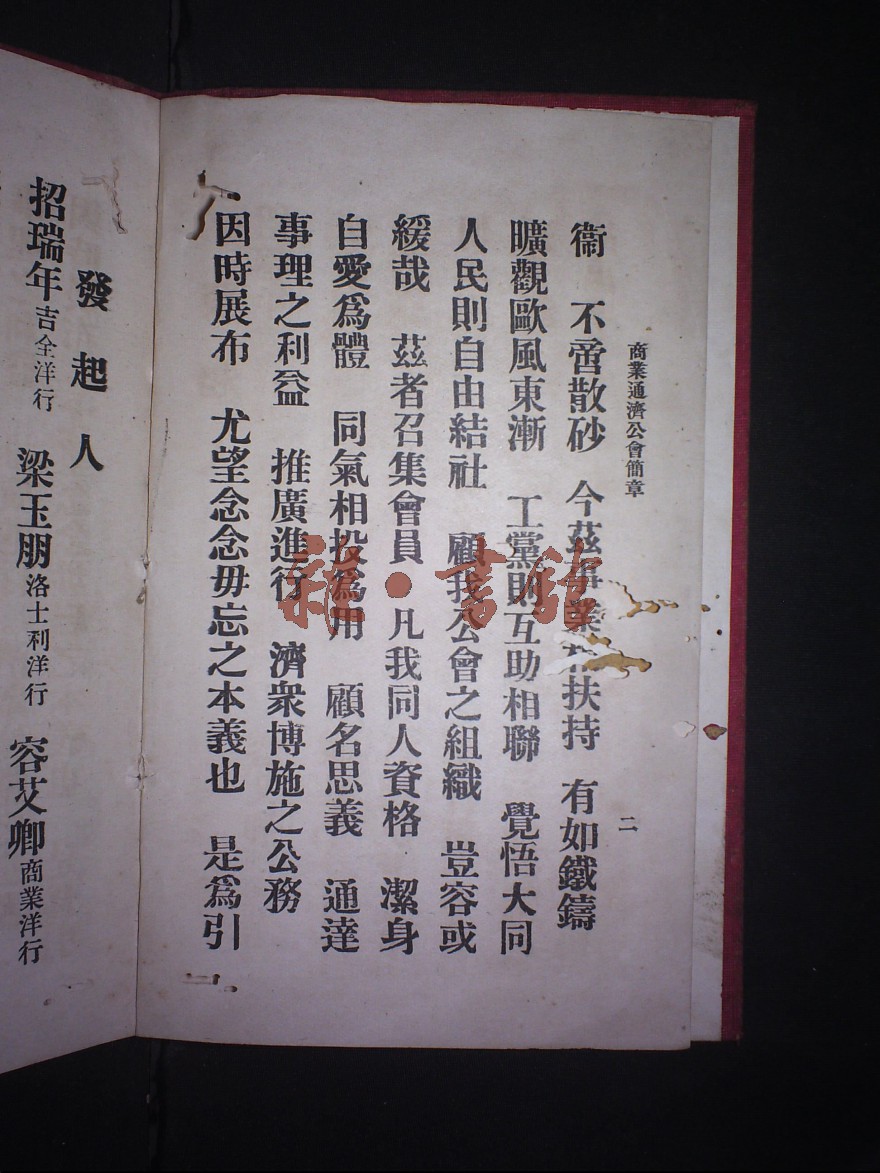 商業通濟公會簡章
二
衞　不啻散砂　今茲事業　扶持　有如鐵鑄
曠觀歐風東漸　工黨則互助相聯　覺悟大同
人民則自由結社　顧我公會之組織　豈容或
緩哉　茲者召集會員　凡我同人資格　潔身
自愛爲體　同氣相投爲用　顧名思義　通達
事理之利益　推廣進行　濟衆博施之公務
因時展布　尤望念念毋忘之本義也　是爲引
發起人
招瑞年吉全洋行　梁玉朋洛士利洋行　容艾卿商業洋行
雜·書館